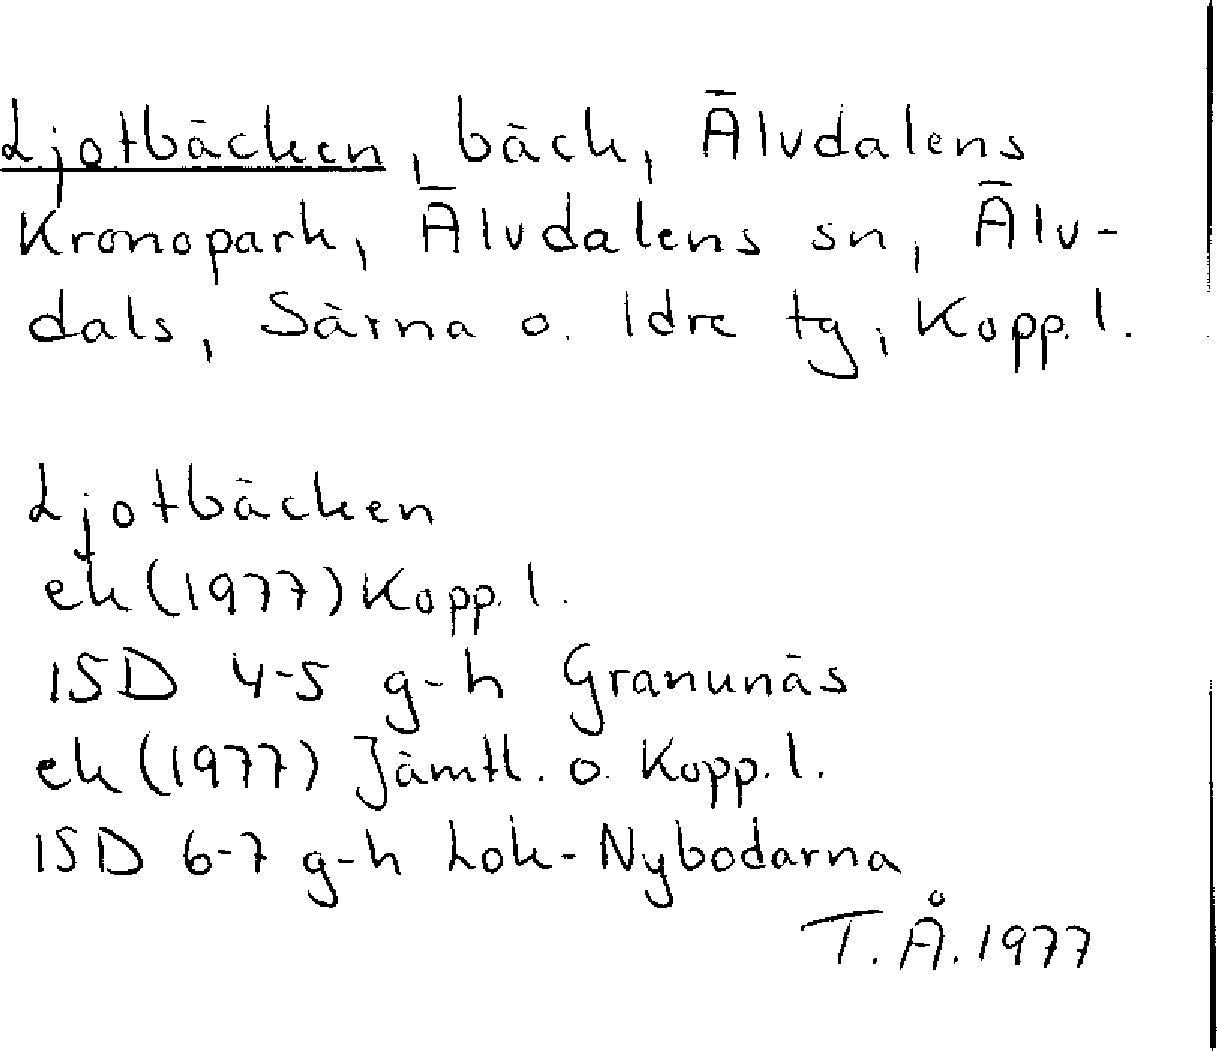 Ljotbäcken, bäck, Älvdalens
Kronopark, Älvdalens sn, Älv-
dals, Särna o. Idre tg, Kopp. l.
Ljotbäcken
ek (1977) Kopp. l.
15D 4-5 g-h Granunäs
ek (1977) Jämtl. o. Kopp. l.
15D 6-7 g-h Lok-Nybodarna
T. Å. 1977